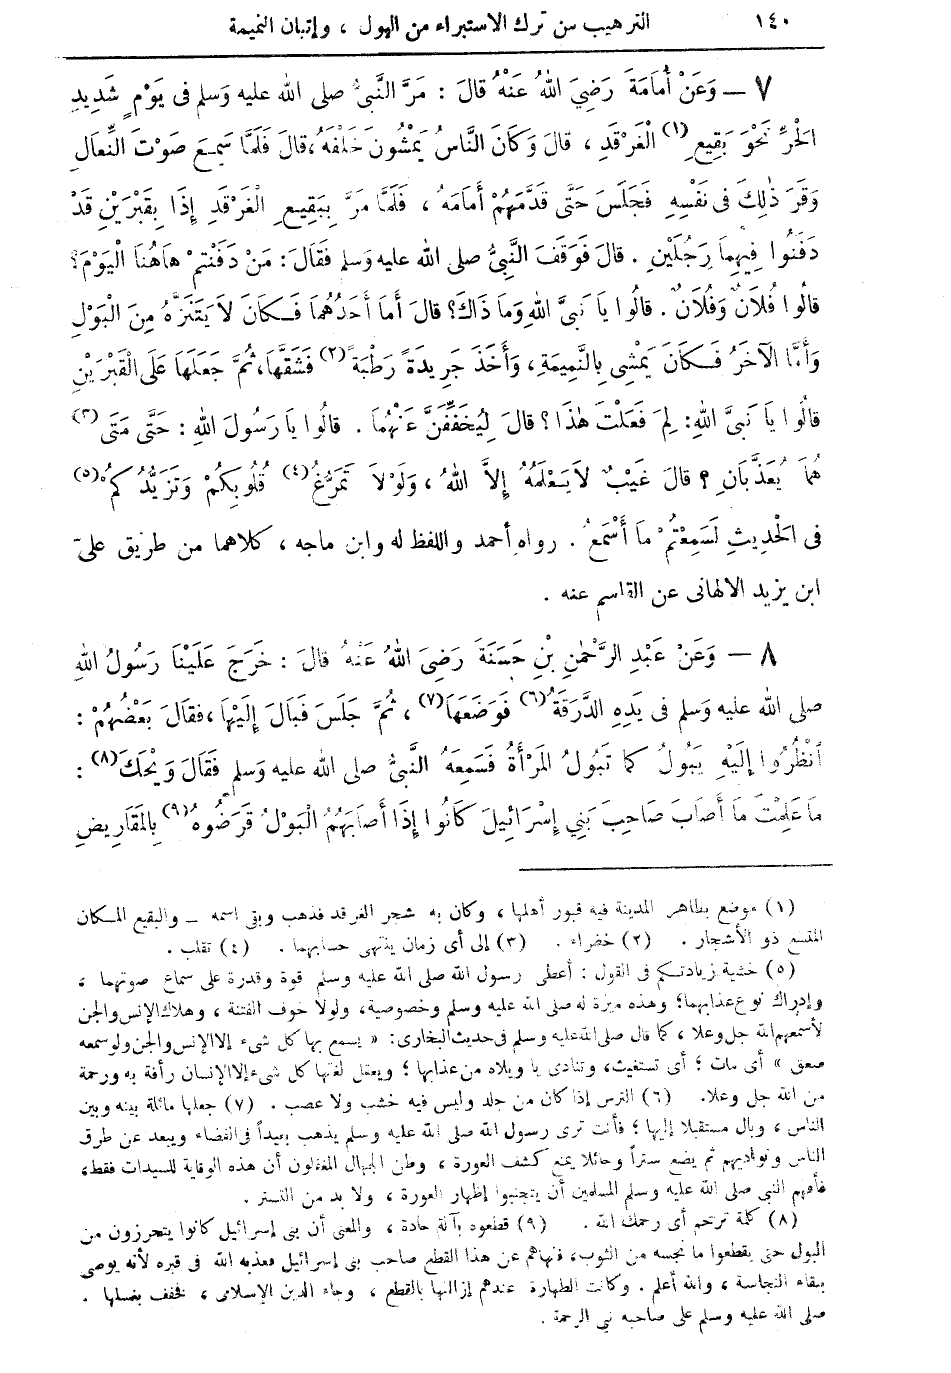 ١٤٠ الترهيب من ترك الاستبراء من البول ، وإتيان النميمة
٧ — وَعَنْ أُمَامَةَ رَضِيَ اللهُ عَنْهُ قالَ : مَرَّ النَّبِيُّ صلى الله عليه وَسَلم فى يَوْمٍ شَدِيدِ
الحَرِّ نَحْوَ بَقِيعِ(١) الْغَرْقَدِ ، قالَ وَكَانَ النَّاسُ يَمْشُونَ خَلْفَهُ، قالَ فَلَمَّا سَمِعَ صَوْتَ النِّعَالِ
وَقَرَ ذٰلِكَ فى نَفْسِهِ فَجَلَسَ حَتَّى قَدَّمَهُمْ أَمَامَهُ ، فَلَمَّا مَرَّ بِبَقِيعِ الْغَرْقَدِ إِذَا بِقَبْرَيْنِ قَدْ
دَفَنُوا فِيهِمَا رَجُلَيْنِ . قالَ فَوَقَفَ النَّبِيُّ صلى الله عليه وَسَلم فَقَالَ : مَنْ دَفَنْتمْ هَاهُنَا الْيَوْمَ؟
قالُوا فُلَانٌ وَفُلَانٌ . قالُوا يَا نَبِىَّ اللهِ وَمَا ذَاكَ؟ قالَ أَما أَحَدُهُمَا فَـكَانَ لَا يَتَنَزَّهُ مِنَ الْبَوْلِ
وَأَمَّا الآخَرُ فَـكَانَ يَمْشِى بِالنَّمِيمَةِ، وَأَخَذَ جَرِيدَةً رَطْبَةً(٢) فَشَقَّهَا، ثُمَّ جَعَلَهَا عَلَى الْقَبْرَيْنِ
قالُوا يَا نَبِىَّ اللهِ: لِمَ فَعَلْتَ هٰذَا؟ قالَ لِيُخَفَّفَنَّ عَنْهُمَا . قالُوا يَا رَسُولَ اللهِ : حَتَّى مَتَى(٣)
هُمَا يُعَذَّبَانِ ؟ قالَ غَيْبٌ لَا يَعْلَمُهُ إِلاَّ اللهُ ، وَلَوْلاَ تَمَرُّغُ(٤) قُلُوبِكُمْ وَتَزَيُّدُكُمْ(٥)
فى الحَدِيثِ لَسَمِعْتُمْ مَا أَسْمَعُ . رواه أحمد واللفظ له وابن ماجه ، كلاهما من طريق على
ابن يزيد الالهانى عن القاسم عنه .
٨ — وَعَنْ عَبْدِ الرَّحْمٰنِ بْنِ حَسَنَةَ رَضِىَ اللهُ عَنْهُ قالَ : خَرَجَ عَلَيْنَا رَسُولُ اللهِ
صلى الله عليه وَسلم فى يَدِهِ الدَّرَقَةُ(٦) فَوَضَعَهَا(٧) ، ثُمَّ جَلَسَ فَبَالَ إِلَيْهَا، فقَالَ بَعْضُهُمْ :
اُنْظُرُوا إِلَيْهِ يَبُولُ كما تَبُولُ المَرْأَةُ فَسَمِعَهُ النَّبِيُّ صلى الله عليه وَسلم فَقَالَ وَيْحَكَ(٨) :
مَا عَلِمْتَ مَا أَصَابَ صَاحِبَ بَنِي إِسْرَائِيلَ كَانُوا إِذَا أَصَابَهُمُ الْبَوْلُ قَرَضُوهُ(٩) بِالمَقَارِيضِ
(١) موضع بظاهر المدينة فيه قبور أهلها ، وكان به شجر الغرقد فذهب وبقى اسمه — والبقيع المـكان
المتسع ذو الأشجار . (٢) خضراء . (٣) إلى أى زمان ينتهى حسابهما . (٤) تقلب .
(٥) خشية زيادتـكم فى القول : أعطى رسول الله صلى الله عليه وسلم قوة وقدرة على سماع صوتهما ،
وإدراك نوع عذابهما؛ وهذه ميزة له صلى الله عليه وسلم وخصوصية، ولولا خوف الفتنة ، وهلاك الإنس والجن
لأسمعهم الله جل وعلا ، كما قال صلى الله عليه وسلم فى حديث البخارى: « يسمع بها كل شىء إلا الإنس والجن ولو سمعه
صعق » أى مات ؛ أى تستغيث، وتنادى يا ويلاه من عذابها ؛ ويعقل لغتها كل شىء إلا الإنسان رأفة به ورحمة
من الله جل وعلا. (٦) الترس إذا كان من جلد وليس فيه خشب ولا عصب . (٧) جعلها مائلة بينه وبين
الناس ، وبال مستقبلا إليها ؛ فأنت ترى رسول الله صلى الله عليه وسلم يذهب بعيداً فى الفضاء ويبعد عن طرق
الناس ونواديهم ثم يضع ستراً وحائلا يمنع كشف العورة ، وظن الجهال المغفلون أن هذه الوقاية للسيدات فقط،
فأفهم النبى صلى الله عليه وسلم المسلمين أن يتجنبوا إظهار العورة ، ولا بد من التستر .
(٨) كلمة ترحم أى رحمك الله . (٩) قطعوه بآلة حادة ، والمعنى أن بنى إسرائيل كانوا يتحرزون من
البول حتى يقطعوا ما نجسه من الثوب، فنهاهم عن هذا القطع صاحب بنى إسرائيل فعذبه الله فى قبره لأنه يوصى
ببقاء النجاسة ، والله أعلم . وكانت الطهارة عندهم إزالتها بالقطع ، وجاء الدين الإسلامى ، فخفف بغسلها .
صلى الله عليه وسلم على صاحبه نبي الرحمة .